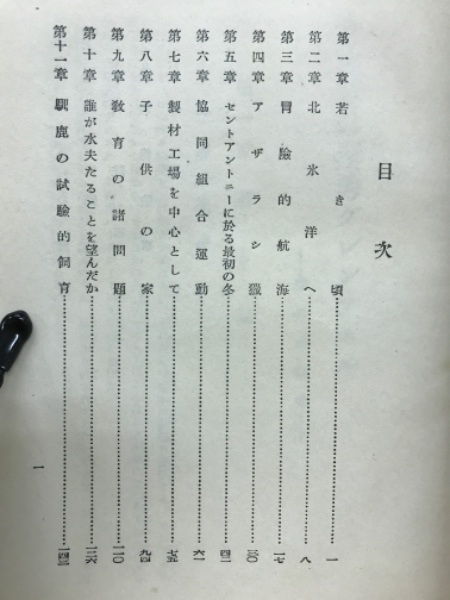 目次
第一章 若き頃……一
第二章 北氷洋へ……八
第三章 冒險的航海……一七
第四章 アザラシ獵……三〇
第五章 セントアントニーに於る最初の冬……四二
第六章 協同組合運動……六一
第七章 製材工場を中心として……七五
第八章 子供の家……九四
第九章 教育の諸問題……一一〇
第十章 誰が水夫たることを望んだか……一二六
第十一章 馴鹿の試驗的飼育……一四三
一